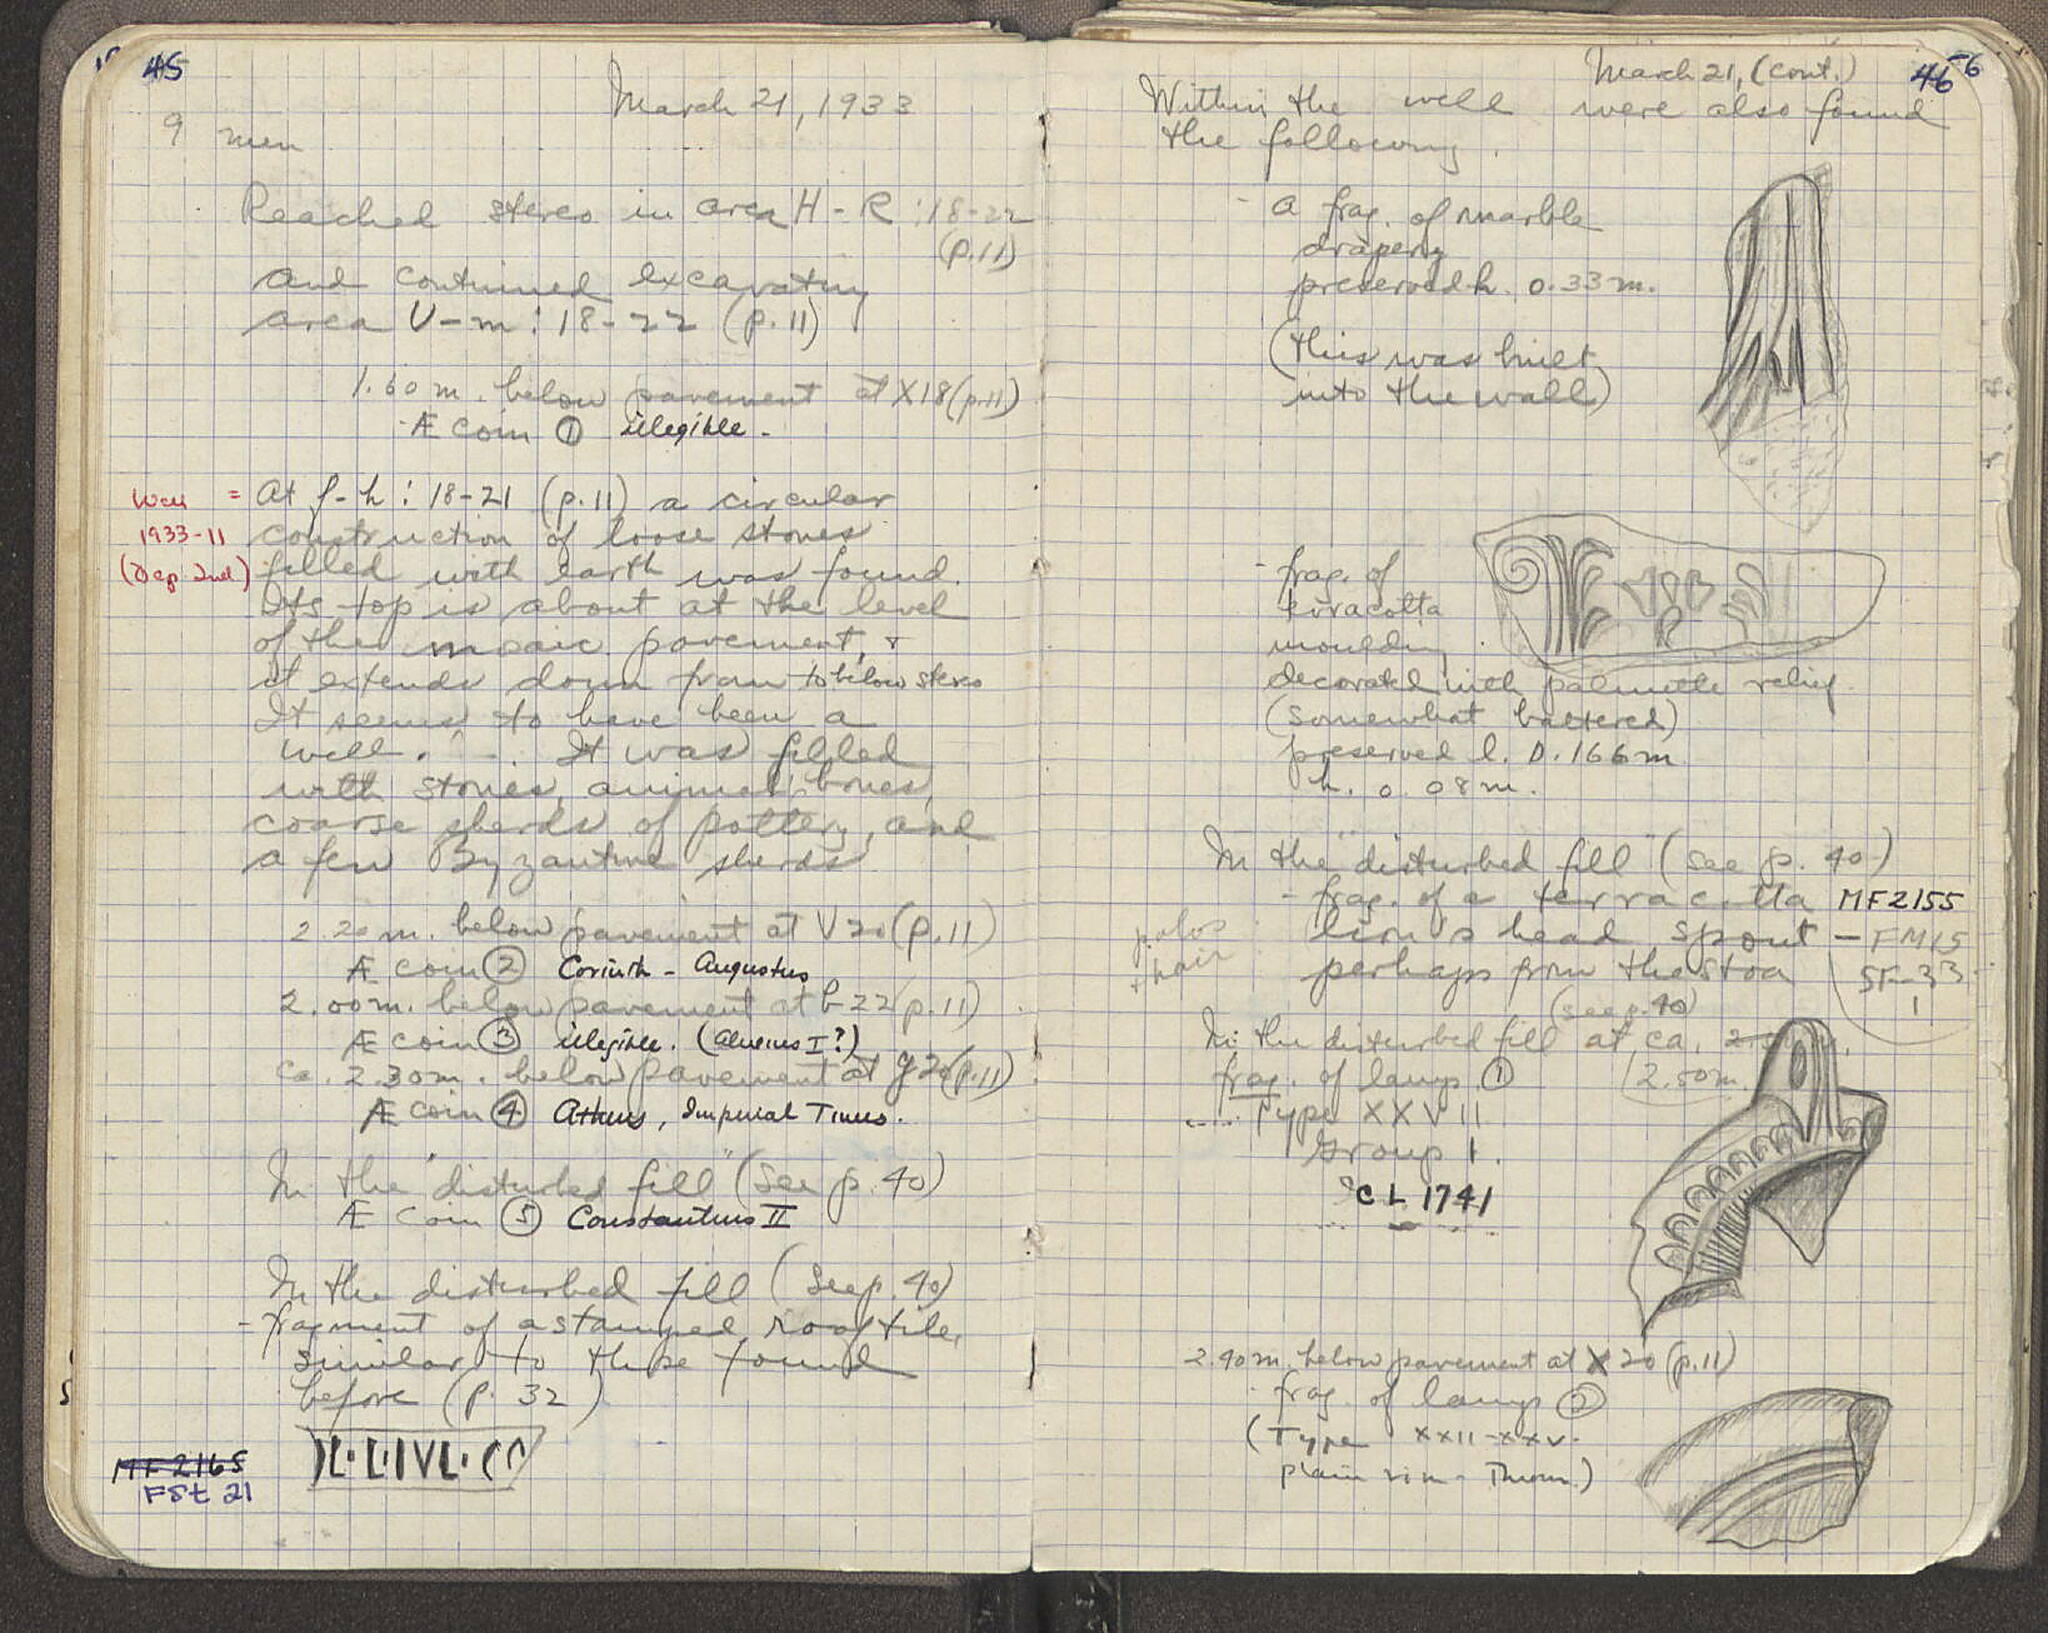 45
March 21, 1933
9 men
Reached stereo in area H-R : 18-22
(p.11)
and continued excavating
area U-m : 18-22 (p.11)
1.60 m. below pavement at X18 (p.11)
Æ coin ① illegible.
Well = At f-h : 18-21 (p.11) a circular
1933-11 construction of loose stones
(Dep. 2nd) filled with earth was found.
Its top is about at the level
of the mosaic pavement, +
it extends down from to below stereo
It seems to have been a
well. It was filled
with stones, animal bones,
coarse sherds of pottery, and
a few Byzantine sherds
2.20 m. below pavement at V20 (p.11)
Æ coin ② Corinth - Augustus
2.00 m. below pavement at b 22 (p.11)
Æ coin ③ illegible. ( I?)
Ca. 2.30 m. below pavement at g 20 (p.11)
Æ coin ④ Athens, Imperial Times.
In the "disturbed fill" (see p. 40)
Æ coin ⑤ Constantius II
In the disturbed fill (See p. 40)
- fragment of a stamped roof tile,
similar to those found
before (p. 32)
L·LIVL·
MF 2165
FSt 21
March 21, (cont.)
46
Within the well were also found
the following.
- a frag. of marble
drapery
preserved h. 0.33 m.
(this was built
into the wall)
- frag. of
terracotta
moulding
decorated with palmette relief
(somewhat battered)
preserved l. 0.166 m
h. 0.08 m.
In the "disturbed fill" (see p. 40)
- frag. of a terracotta MF2155
lion's head spout - FM15
perhaps from the stoa
hair
(see p. 40)
In the disturbed fill at ca.
2.50 m.
frag. of lamp ①
Type XXVII
Group 1.
CL 1741
2.40 m. below pavement at X 20 (p.11)
- frag. of lamp ②
(Type XXII-XXV.
plain rim - Thum.)